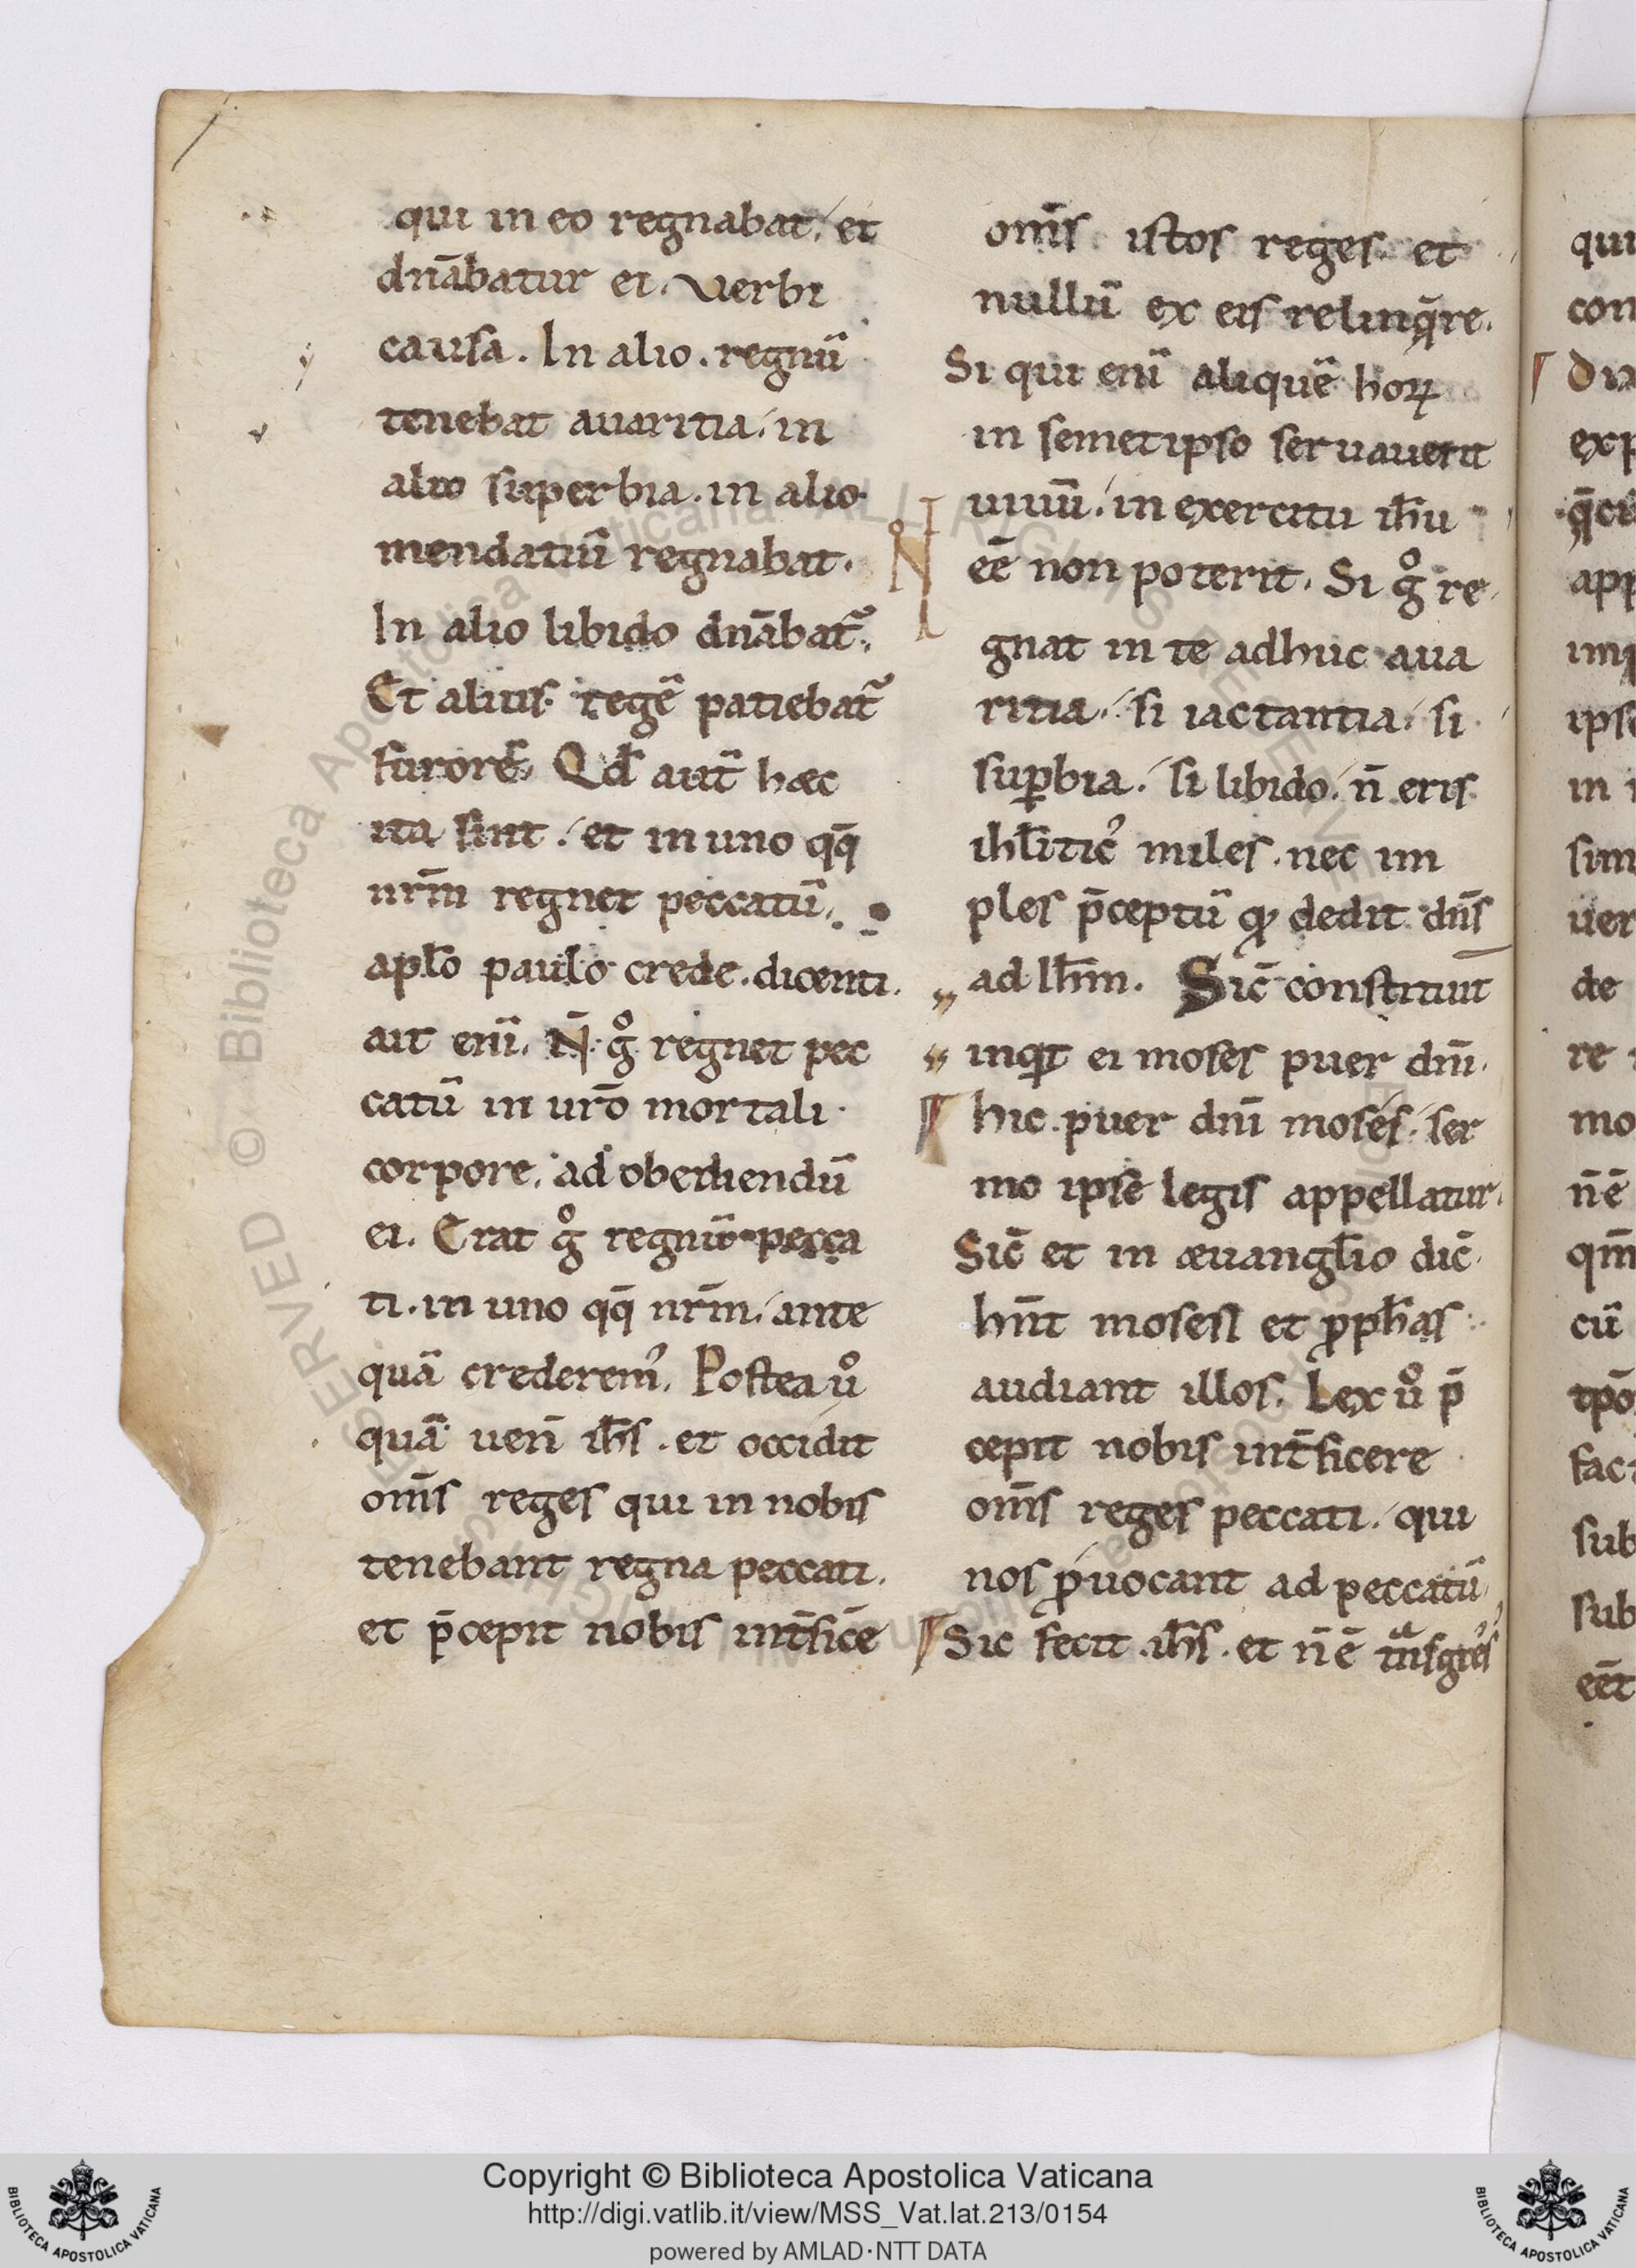 qui in eo regnabat, et
dnābatur ei. verbi
causa. In alio. regnū
tenebat avaritia. in
alio superbia. in alio
mendatiū regnabat.
In alio libido dnābat᷑.
Et alius regē patiebat᷑
furorē. Qd̄ aut̄ haec
ita sint. et in uno qq̄
nrm̄ regnet peccatū.
aplo̅ paulo crede. dicenti.
ait eni̅. N̄ gͦ regnet pec
catū in uro̅ mortali
corpore. ad obediendū
ei. Erat gͦ regnū pecca
ti. in uno qq̄ nrm̄. ante
quā crederemꝰ. Postea uͦ
quā ven̄ ih̄s. et occidit
om̄s reges qui in nobis
tenebant regna peccati.
et p̄cepit nobis int̄ficē
om̄s istos reges et
nullū ex eis relinq̄re.
Si qui eni̅ aliquē hoꝝ
in semetipso servaverit
vivū. in exercitu ih̄u
eē non poterit. Si gͦ re
gnat in te adhuc ava
ritia. si iactantia. si
suꝑbia. si libido. n̄ eris
ihl̄iticꝰ miles. nec im
ples p̄ceptū qđ dedit dn̄s
ad Ih̄m. Sic̄ constituit
inqͥt ei moses puer dn̄i.
hic puer dn̄i moses. ser
mo ipse legis appellatur.
Sic̄ et in aevangl̄io dic̄
hn̄t mosen et ꝓph̄as
audiant illos. Lex uͦ p̄
cepit nobis int̄ficere
om̄s reges peccati. qui
nos ꝓvocant ad peccatū
Sic fecit ih̄s. et n̄ ē tͣnsgres
N
qui
con
ex
app
ips
in
sim
ver
de
re
mo
n̄ ē
qm̄
cū
tpō
fac
sub
sub
eēt
© Biblioteca Apostolica Vaticana ALL RIGHTS RESERVED
Copyright © Biblioteca Apostolica Vaticana
http://digi.vatlib.it/view/MSS_Vat.lat.213/0154
powered by AMLAD·NTT DATA
BIBLIOTECA APOSTOLICA VATICANA
BIBLIOTECA APOSTOLICA VATICANA